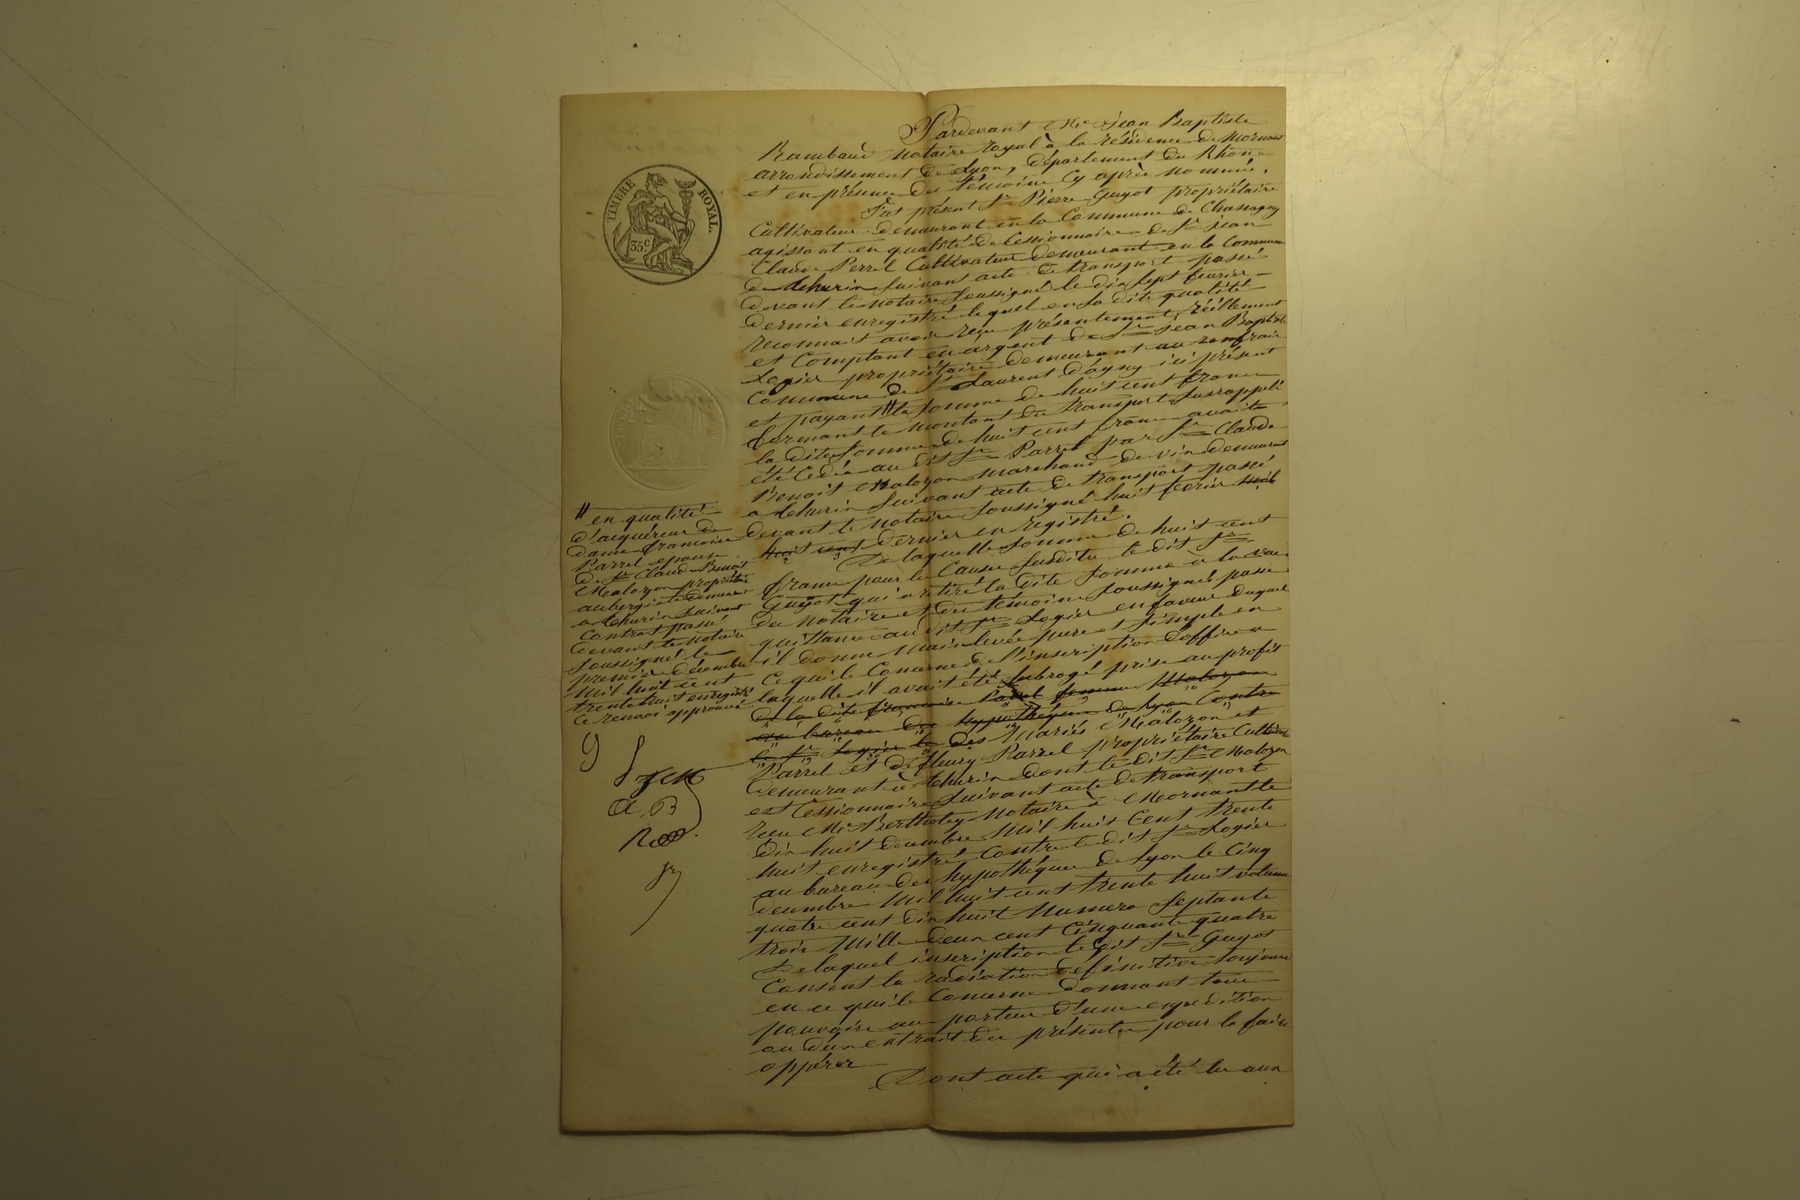 TIMBRE ROYAL.
35c
Pardevant Me Jean Baptiste
Rambaud Notaire royal à la résidence de Mornant
arrondissement de Lyon, département du Rhône
et en présence des témoins Cy après nommés.
Fut présent Sr Pierre Guyot propriétaire
Cultivateur demeurant en la Commune de Chassagny
agissant en qualité de Cessionnaire de Sr Jean
Claude Perrel Cultivateur demeurant en la Commune
de thurin suivant acte de transport passé
devant le Notaire soussigné le dix sept fevrier
dernier enregistré lequel en sa dite qualité
reconnait avoir reçu présentement, réellement
et Comptant en argent de Sr Jean Baptiste
Logier propriétaire demeurant au
Commune de St Laurent d'agny ici présent
et payant la somme de huit cent francs
formant le montant du transport susrappelé
la dite somme de huit cent francs avait
été Cédée au dit Sr Parrel par Sr Claude
Benoit Malozon Marchand de vin demeurant
a thurin suivant acte de transport passé
devant le Notaire soussigné huit fevrier mil
huit cent dernier enregistré.
De laquelle somme de huit cent
francs pour les Causes susdites le dit Sr
Guyot qui a retiré la dite somme a la vue
du Notaire et des témoins soussignés passe
quittance au dit Sr Logier en faveur duquel
il donne Main levée pure et simple en
ce qui le Concerne de l'inscription d'office a
laquelle il avait été subrogé prise au profit
de la dite françoise Parrel femme Malozon
au bureau des hypothéques de Lyon Contre
le Sr Logier le des Mariés Malozon et
Parrel et de fleury Parrel propriétaire Cultivateur
demeurant à thurin dont le dit Sr Malozon
est Cessionnaire suivant acte de transport
reçu Me Bertholey Notaire à Mornant le
dix huit decembre Mil huit Cent trente
huit enregistré Contre le dit Sr Logier
au bureau des hypothéques de Lyon le Cinq
decembre Mil huit cent trente huit volume
quatre cent dix huit Numero Septante
trois Mille deux cent Cinquante quatre
De laquel inscription le dit Sr Guyot
Consent la radiation définitive toujours
en ce qui le Concerne donnant tous
pouvoirs au porteur d'une expédition
ou d'un extrait des présentes pour le faire
oppérer
Dont acte qui a été lu aux
en qualité
d'acquéreur de
dame françoise
Parrel epouse
de Sr Claud Benoit
Malozon propriétaire
aubergiste demeurant
a thurin suivant
Contrat passé
devant le Notaire
soussigné le
premier décembre
Mil huit cent
trente huit enregistré
Ce renvoi approuvé